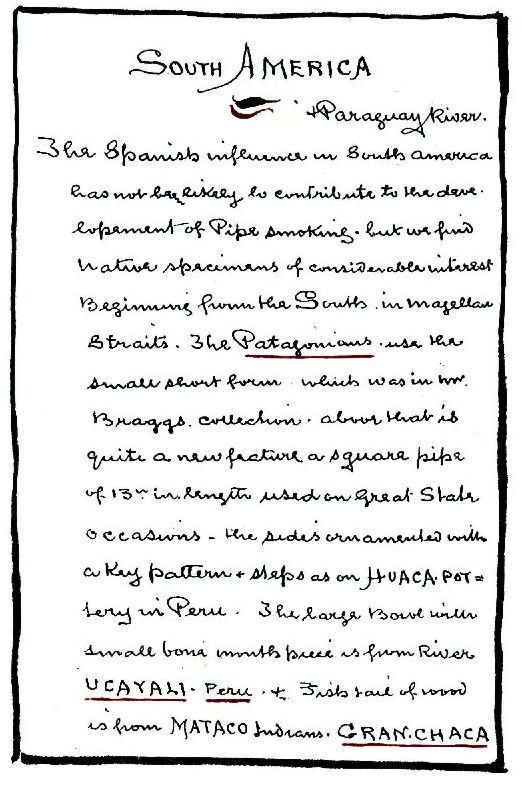 SOUTH AMERICA
+ Paraguay River.
The Spanish influence in South america
has not been likely to contribute to the deve-
lopement of Pipe smoking. but we find
native specimens of considerable interest
Beginning from the South. in Magellan
Straits. The Patagonians. use the
small short form which was in Mr.
Braggs. collection. above that is
quite a new feature a square pipe
of 13 in. length used on Great State
occasions - the sides ornamented with
a Key pattern + steps as on HUACA. POT=
tery in Peru. The large Bowl with
small bone mouth piece is from River
UCAYALI. Peru. + Fish tail of wood
is from MATACO Indians. GRAN. CHACA